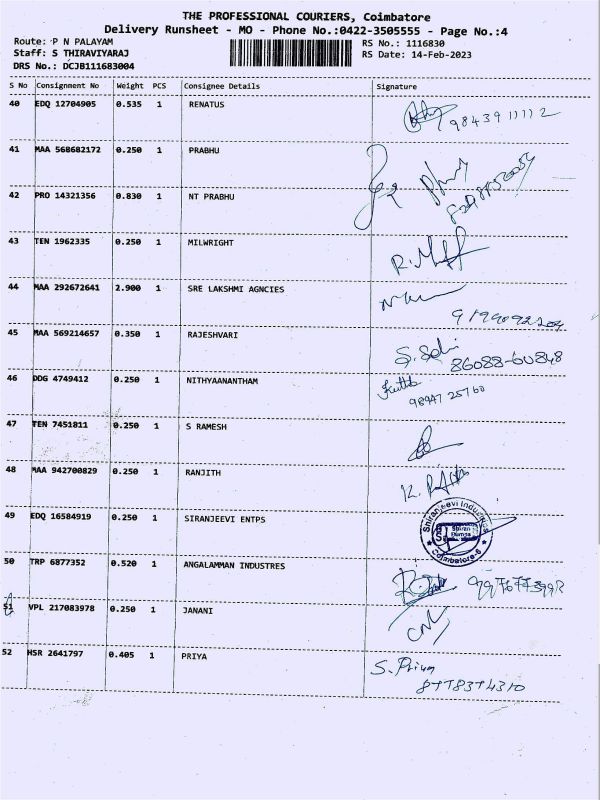 THE PROFESSIONAL COURIERS, Coimbatore
Delivery Runsheet - MO - Phone No.:0422-3505555 - Page No.:4
Route: P N PALAYAM
Staff: S THIRAVIYARAJ
DRS No.: DCJB111683004
RS No.: 1116830
RS Date: 14-Feb-2023
S No Consignment No Weight PCS Consignee Details Signature
40 EDQ 12704905 0.535 1 RENATUS
9843911112
41 MAA 568682172 0.250 1 PRABHU
42 PRO 14321356 0.830 1 NT PRABHU
43 TEN 1962335 0.250 1 MILWRIGHT
44 MAA 292672641 2.900 1 SRE LAKSHMI AGNCIES
45 MAA 569214657 0.350 1 RAJESHVARI
86088-60848
46 DDG 4749412 0.250 1 NITHYAANANTHAM
98947 25760
47 TEN 7451811 0.250 1 S RAMESH
48 MAA 942700829 0.250 1 RANJITH
49 EDQ 16584919 0.250 1 SIRANJEEVI ENTPS
Shiranjeevi Industries
Coimbatore-6
50 TRP 6877352 0.520 1 ANGALAMMAN INDUSTRES
51 VPL 217083978 0.250 1 JANANI
52 HSR 2641797 0.405 1 PRIYA
S. Priya
8778374310